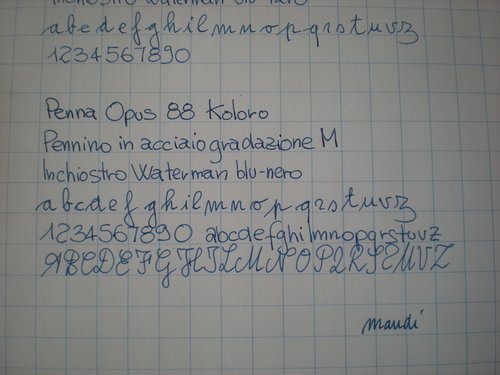 Inchiostro Waterman blu nero
abcdefghilmnopqrstuvz
1234567890
Penna Opus 88 Koloro
Pennino in acciaio gradazione M
Inchiostro Waterman blu-nero
abcdefghilmnopqrstuvz
1234567890 abcdefghilmnopqrstuvz
ABCDEFGHILMNOPQRSTUVZ
maudi